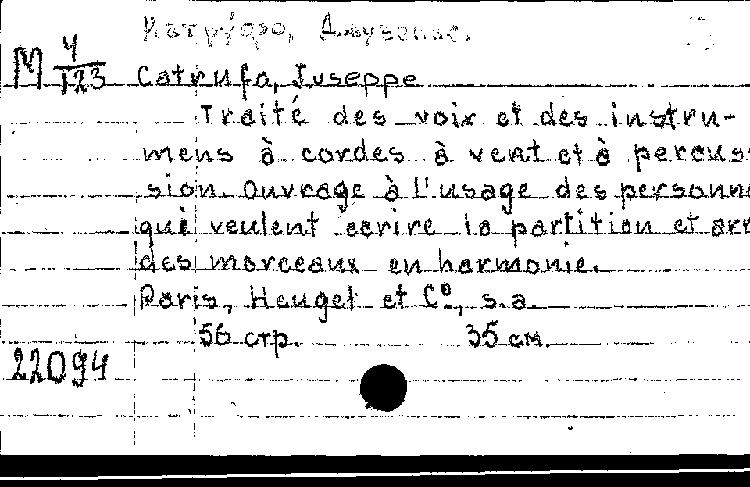 Катруфо, Джузеппе.
М 4/123 Catrufo, Iuseppe
Traité des voix et des instru-
mens à cordes à vent et à percus
sion. Ouvrage à l'usage des personn
qui veulent écrire la partition et arr
des morceaux en harmonie.
Paris, Heugel et Cº, s.a.
56 стр. 35 см.
22094